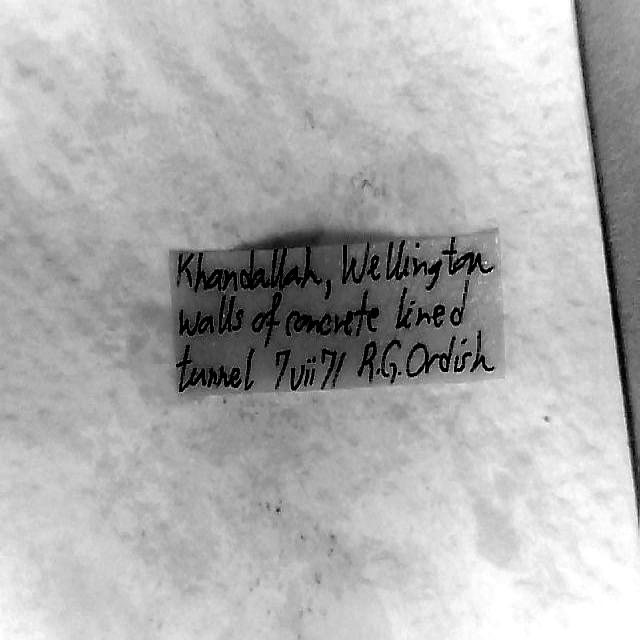 Khandallah, Wellington
walls of concrete lined
tunnel 7vii71 R.G.Ordish